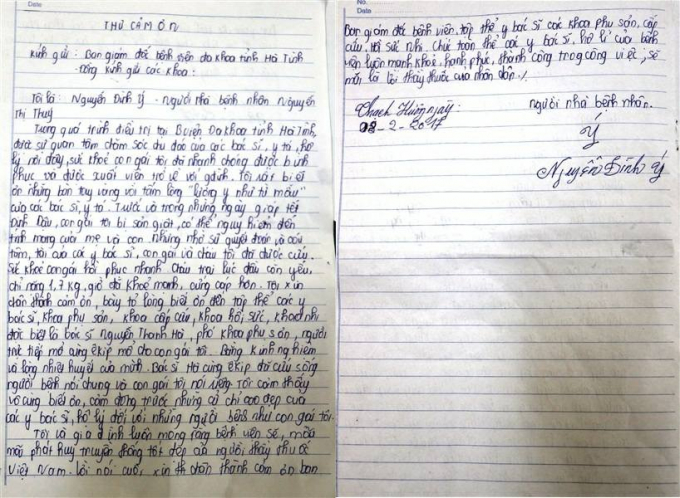 Date
THƯ CẢM ƠN
Kính gửi: Ban giám đốc bệnh viện đa khoa tỉnh Hà Tĩnh
Đồng kính gửi các khoa:
Tôi là: Nguyễn Đình Ý - Người nhà bệnh nhân Nguyễn
Thị Thuỷ
Trong quá trình điều trị tại Bv viện Đa khoa tỉnh Hà Tĩnh,
được sự quan tâm chăm sóc chu đáo của các bác sĩ, y tá, hộ
lý nơi đây, sức khoẻ con gái tôi đã nhanh chóng được bình
phục và được xuất viện trở về với gđình. Tôi rất biết
ơn những bàn tay vàng với tấm lòng "lương y như từ mẫu"
của các bác sĩ, y tá. Trước và trong những ngày giáp tết
Đinh Dậu, con gái tôi bị sản giật, có thể nguy hiểm đến
tính mạng của mẹ và con nhưng nhờ sự quyết đoán và cứu
tâm, tài của các y bác sĩ, con gái và cháu tôi đã được cứu.
Sức khoẻ con gái hồi phục nhanh cháu trai lúc đầu còn yếu,
chỉ nặng 1,7 kg, giờ đã khoẻ mạnh, cứng cáp hơn. Tôi xin
chân thành cảm ơn, bày tỏ lòng biết ơn đến tập thể các y
bác sĩ, khoa phụ sản, khoa cấp cứu, khoa hồi sức, khoa nhi
đặc biệt là bác sĩ Nguyễn Thanh Hà, phó khoa phụ sản, người
trực tiếp mổ cùng êkip mổ cho con gái tôi. Bằng kinh nghiệm
và lòng nhiệt huyết của mình. Bác sĩ Hà cùng êkip đã cứu sống
người bệnh nói chung và con gái tôi nói riêng. Tôi cảm thấy
vô cùng biết ơn, cảm động trước những cử chỉ cao đẹp của
các y bác sĩ, hộ lý đối với những người bệnh như con gái tôi.
Tôi và gia đình luôn mong rằng bệnh viện sẽ, mãi
mãi phát huy truyền thống tốt đẹp của người thầy thuốc
Việt Nam. Lời nói cuối, xin th chân thành cảm ơn ban
No.
Date
Ban giám đốc bệnh viện. tập thể y bác sĩ các khoa phụ sản, cấp
cứu, hồi sức nhi. Chúc toàn thể các y bác sĩ, hộ lí của bệnh
viện luôn mạnh khoẻ, hạnh phúc, thành công trong công việc, sẽ
mãi là lời thầy thuốc của nhân dân!
Thạch Hương ngày
02-2-2017
người nhà bệnh nhân.
Ý
Nguyễn Đình Ý